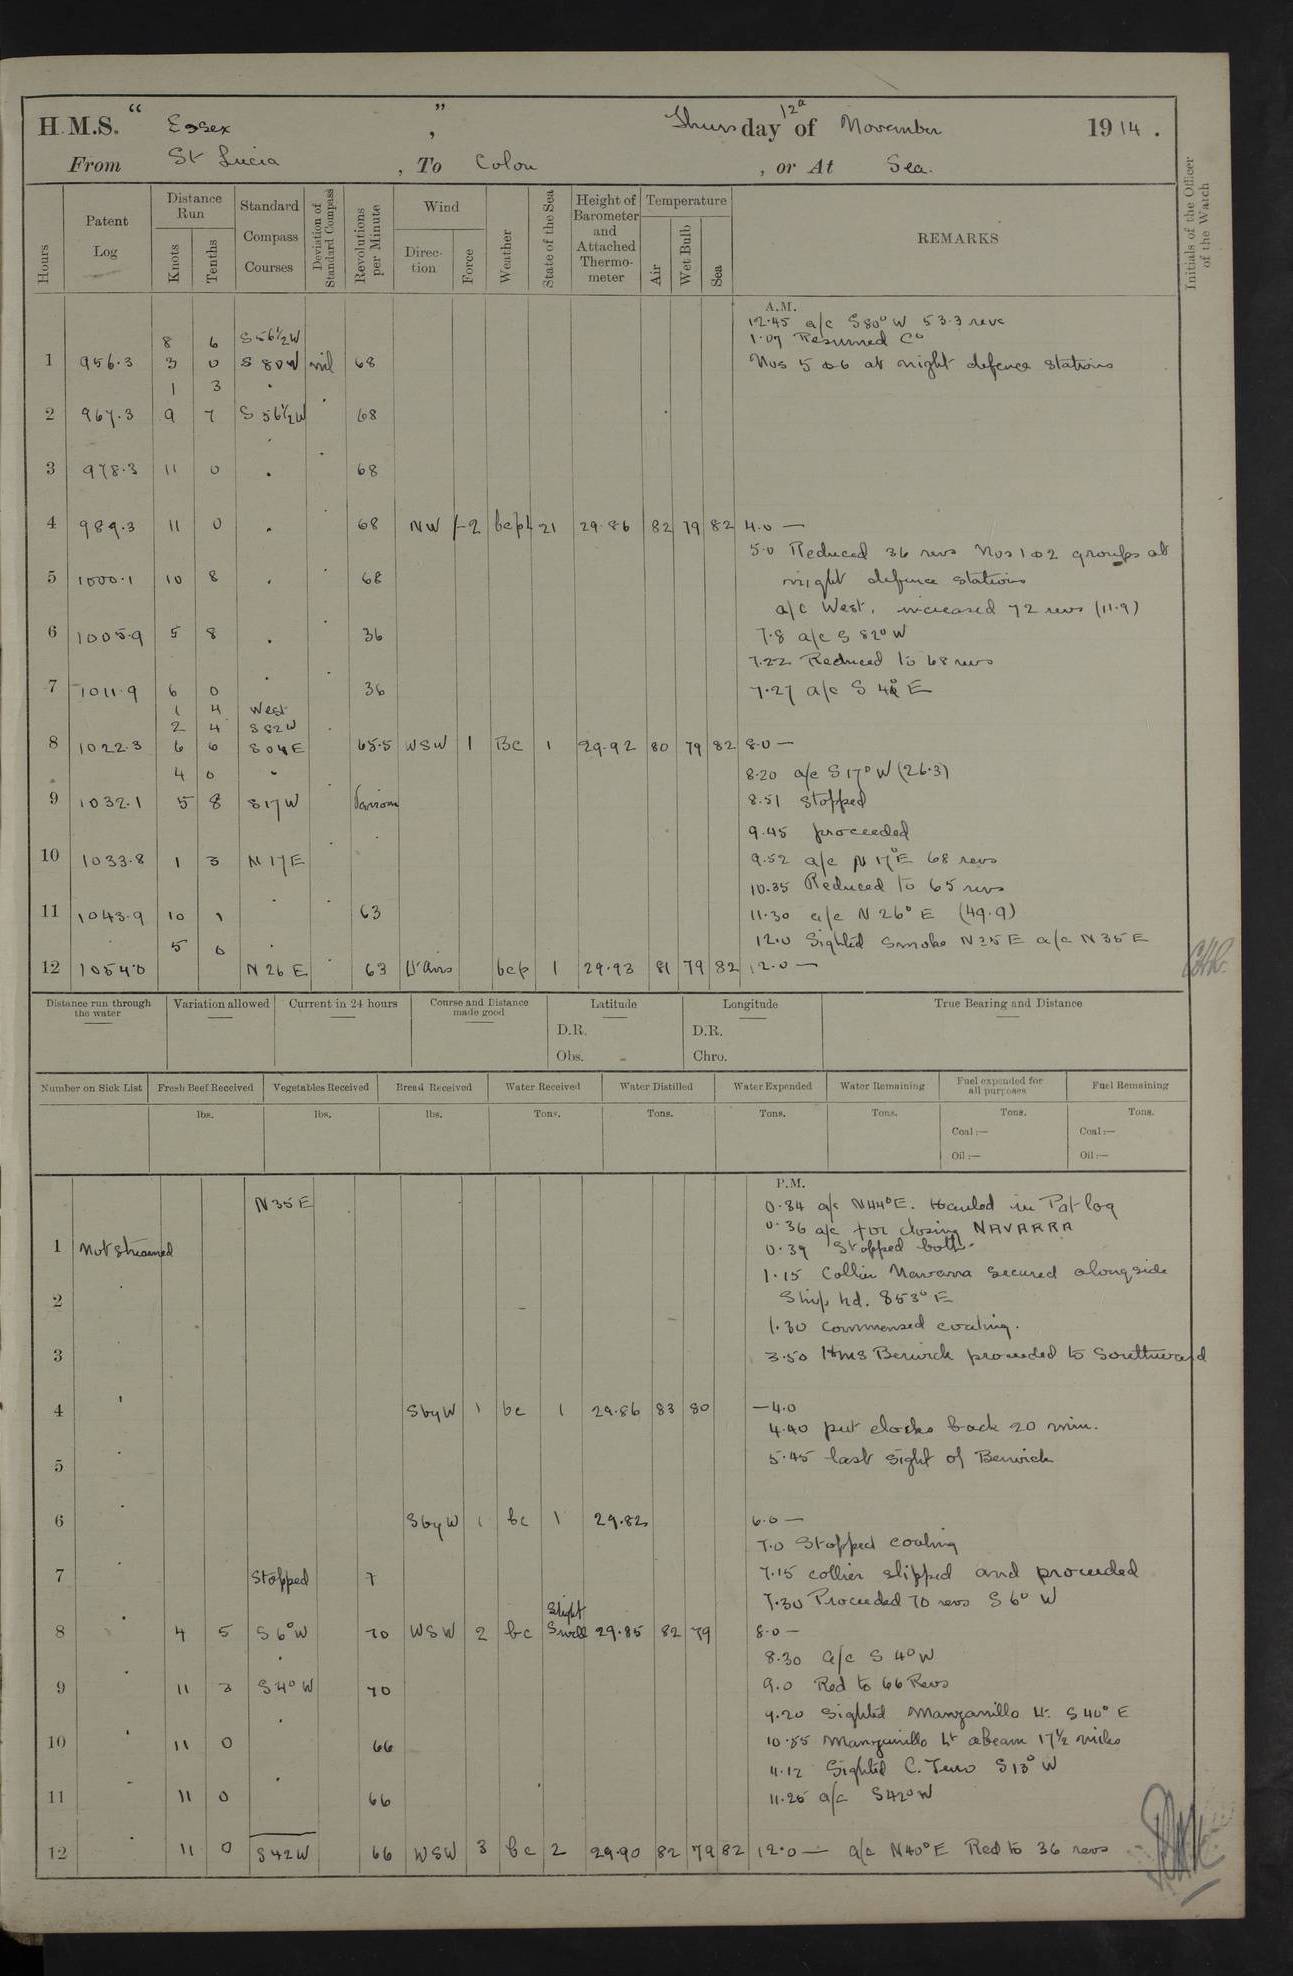 H.M.S. " Essex " , Thursday 12th of November 1914.
From St Lucia , To Colon , or At Sea.
Hours Patent Log Distance Run Knots Tenths Standard Compass Courses Deviation of Standard Compass Revolutions per Minute Wind Direction Force Weather State of the Sea Height of Barometer and Attached Thermometer Temperature Air Wet Bulb Sea REMARKS Initials of the Officer of the Watch
A.M.
12.45 a/c S 80° W 53.3 revs
8 6 S 56½ W 1.07 Resumed Co
1 956.3 3 0 S 80 W nil 68 Nos 5 & 6 at night defence stations
1 3 "
2 967.3 9 7 S 56½ W 68
3 978.3 11 0 " 68
4 989.3 11 0 " 68 NW 1-2 21 29.86 82 79 82 4.0 —
5.0 Reduced 36 revs Nos 1 & 2 groups at
5 1000.1 10 8 " 68 night defence stations
a/c West, increased 72 revs (11.9)
6 1005.9 5 8 " 36 7.8 a/c S 82° W
7.22 Reduced to 68 revs
7 1011.9 6 0 " 36 7.27 a/c S 4° E
1 4 West
2 4 S 82 W
8 1022.3 6 6 S 04 E 65.5 WSW 1 Bc 1 29.92 80 79 82 8.0 —
4 0 " 8.20 a/c S 17° W (26.3)
9 1032.1 5 8 S 17 W Various 8.51 Stopped
9.45 proceeded
10 1033.8 1 3 N 17 E 9.52 a/c N 17° E 68 revs
10.35 Reduced to 65 revs
11 1043.9 10 1 " 63 11.30 a/c N 26° E (49.9)
5 0 " 12.0 Sighted Smoke N 35 E a/c N 35 E
12 1054.0 N 26 E 63 Lt airs bcp 1 29.93 81 79 82 12.0 —
Distance run through the water Variation allowed Current in 24 hours Course and Distance made good Latitude Longitude True Bearing and Distance
D.R. D.R.
Obs. Chro.
Number on Sick List Fresh Beef Received Vegetables Received Bread Received Water Received Water Distilled Water Expended Water Remaining Fuel expended for all purposes Fuel Remaining
lbs. lbs. lbs. Tons. Tons. Tons. Tons. Tons. Tons.
Coal:— Coal:—
Oil:— Oil:—
P.M.
N 35 E 0.34 a/c N 44° E. Hauled in Pat log
0.36 a/c for closing NAVARRA
1 Not streamed 0.39 Stopped both.
1.15 Collier Navarra secured alongside
2 Ship hd. S 53° E
1.30 commenced coaling.
3 3.50 HMS Berwick proceeded to Southward
4 " S by W 1 bc 1 29.86 83 80 — 4.0
4.40 put clocks back 20 min.
5 " 5.45 last sight of Berwick
6 " S by W 1 bc 1 29.82 6.0 —
7.0 Stopped coaling
7 " Stopped 7 7.15 collier slipped and proceeded
7.30 Proceeded 70 revs S 6° W
8 " 4 5 S 6° W 70 WSW 2 bc Slight Swell 29.85 82 79 8.0 —
" 8.30 a/c S 4° W
9 " 11 3 S 4° W 70 9.0 Red to 66 Revs
" 9.20 Sighted Manzanillo Lt. S 40° E
10 " 11 0 66 10.55 Manzanillo Lt abeam 17½ miles
" 11.12 Sighted C. S 13° W
11 11 0 66 11.25 a/c S 42° W
12 " 11 0 S 42 W 66 WSW 3 bc 2 29.90 82 79 82 12.0 — a/c N 40° E Red to 36 revs